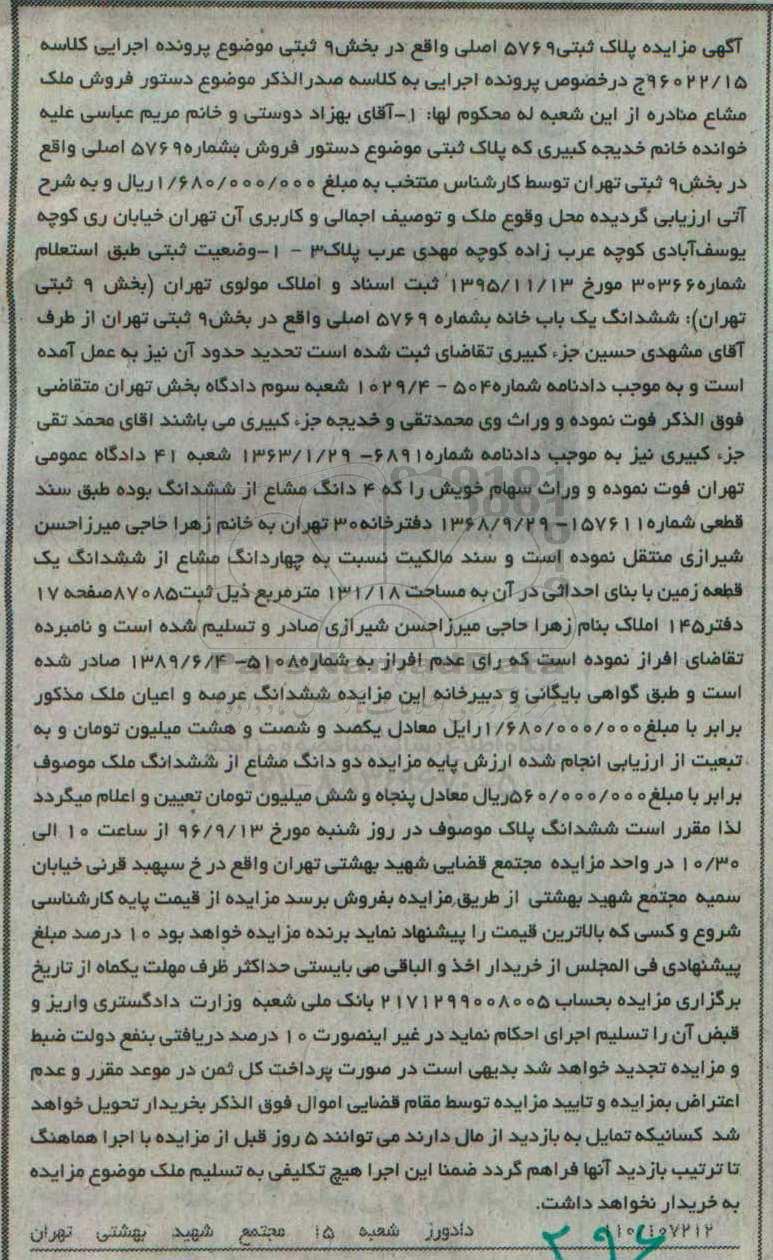 آگهی مزایده پلاک ثبتی۵۷۶۹ اصلی واقع در بخش۹ ثبتی موضوع پرونده اجرایی کلاسه
۹۶۰۲۲/۱۵ج درخصوص پرونده اجرایی به کلاسه صدرالذکر موضوع دستور فروش ملک
مشاع صادره از این شعبه له محکوم لها: ۱-آقای بهزاد دوستی و خانم مریم عباسی علیه
خوانده خانم خدیجه کبیری که پلاک ثبتی موضوع دستور فروش بشماره۵۷۶۹ اصلی واقع
در بخش۹ ثبتی تهران توسط کارشناس منتخب به مبلغ ۱/۶۸۰/۰۰۰/۰۰۰ریال و به شرح
آتی ارزیابی گردیده محل وقوع ملک و توصیف اجمالی و کاربری آن تهران خیابان ری کوچه
یوسف‌آبادی کوچه عرب زاده کوچه مهدی عرب پلاک۳ - ۱-وضعیت ثبتی طبق استعلام
شماره۳۰۳۶۶ مورخ ۱۳۹۵/۱۱/۱۳ ثبت اسناد و املاک مولوی تهران (بخش ۹ ثبتی
تهران): ششدانگ یک باب خانه بشماره ۵۷۶۹ اصلی واقع در بخش۹ ثبتی تهران از طرف
آقای مشهدی حسین جزء کبیری تقاضای ثبت شده است تحدید حدود آن نیز به عمل آمده
است و به موجب دادنامه شماره۵۰۴ - ۱۰۲۹/۴ شعبه سوم دادگاه بخش تهران متقاضی
فوق الذکر فوت نموده و وراث وی محمدتقی و خدیجه جزء کبیری می باشند اقای محمد تقی
جزء کبیری نیز به موجب دادنامه شماره۶۸۹۱- ۱۳۶۳/۱/۲۹ شعبه ۴۱ دادگاه عمومی
تهران فوت نموده و وراث سهام خویش را که ۴ دانگ مشاع از ششدانگ بوده طبق سند
قطعی شماره۱۵۷۶۱۱- ۱۳۶۸/۹/۲۹ دفترخانه۳۰ تهران به خانم زهرا حاجی میرزاحسن
شیرازی منتقل نموده است و سند مالکیت نسبت به چهاردانگ مشاع از ششدانگ یک
قطعه زمین با بنای احداثی در آن به مساحت ۱۳۱/۱۸ مترمربع ذیل ثبت۸۷۰۸۵صفحه ۱۷
دفتر۱۴۵ املاک بنام زهرا حاجی میرزاحسن شیرازی صادر و تسلیم شده است و نامبرده
تقاضای افراز نموده است که رای عدم افراز به شماره۵۱۰۸- ۱۳۸۹/۶/۴ صادر شده
است و طبق گواهی بایگانی و دبیرخانه این مزایده ششدانگ عرصه و اعیان ملک مذکور
برابر با مبلغ۱/۶۸۰/۰۰۰/۰۰۰رایل معادل یکصد و شصت و هشت میلیون تومان و به
تبعیت از ارزیابی انجام شده ارزش پایه مزایده دو دانگ مشاع از ششدانگ ملک موصوف
برابر با مبلغ۵۶۰/۰۰۰/۰۰۰ریال معادل پنجاه و شش میلیون تومان تعیین و اعلام میگردد
لذا مقرر است ششدانگ پلاک موصوف در روز شنبه مورخ ۹۶/۹/۱۳ از ساعت ۱۰ الی
۱۰/۳۰ در واحد مزایده مجتمع قضایی شهید بهشتی تهران واقع در خ سپهبد قرنی خیابان
سمیه مجتمع شهید بهشتی از طریق مزایده بفروش برسد مزایده از قیمت پایه کارشناسی
شروع و کسی که بالاترین قیمت را پیشنهاد نماید برنده مزایده خواهد بود ۱۰ درصد مبلغ
پیشنهادی فی المجلس از خریدار اخذ و الباقی می بایستی حداکثر ظرف مهلت یکماه از تاریخ
برگزاری مزایده بحساب ۲۱۷۱۲۹۹۰۰۸۰۰۵ بانک ملی شعبه وزارت دادگستری واریز و
قبض آن را تسلیم اجرای احکام نماید در غیر اینصورت ۱۰ درصد دریافتی بنفع دولت ضبط
و مزایده تجدید خواهد شد بدیهی است در صورت پرداخت کل ثمن در موعد مقرر و عدم
اعتراض بمزایده و تایید مزایده توسط مقام قضایی اموال فوق الذکر بخریدار تحویل خواهد
شد کسانیکه تمایل به بازدید از مال دارند می توانند ۵ روز قبل از مزایده با اجرا هماهنگ
تا ترتیب بازدید آنها فراهم گردد ضمنا این اجرا هیچ تکلیفی به تسلیم ملک موضوع مزایده
به خریدار نخواهد داشت.
دادورز شعبه ۱۵ مجتمع شهید بهشتی تهران